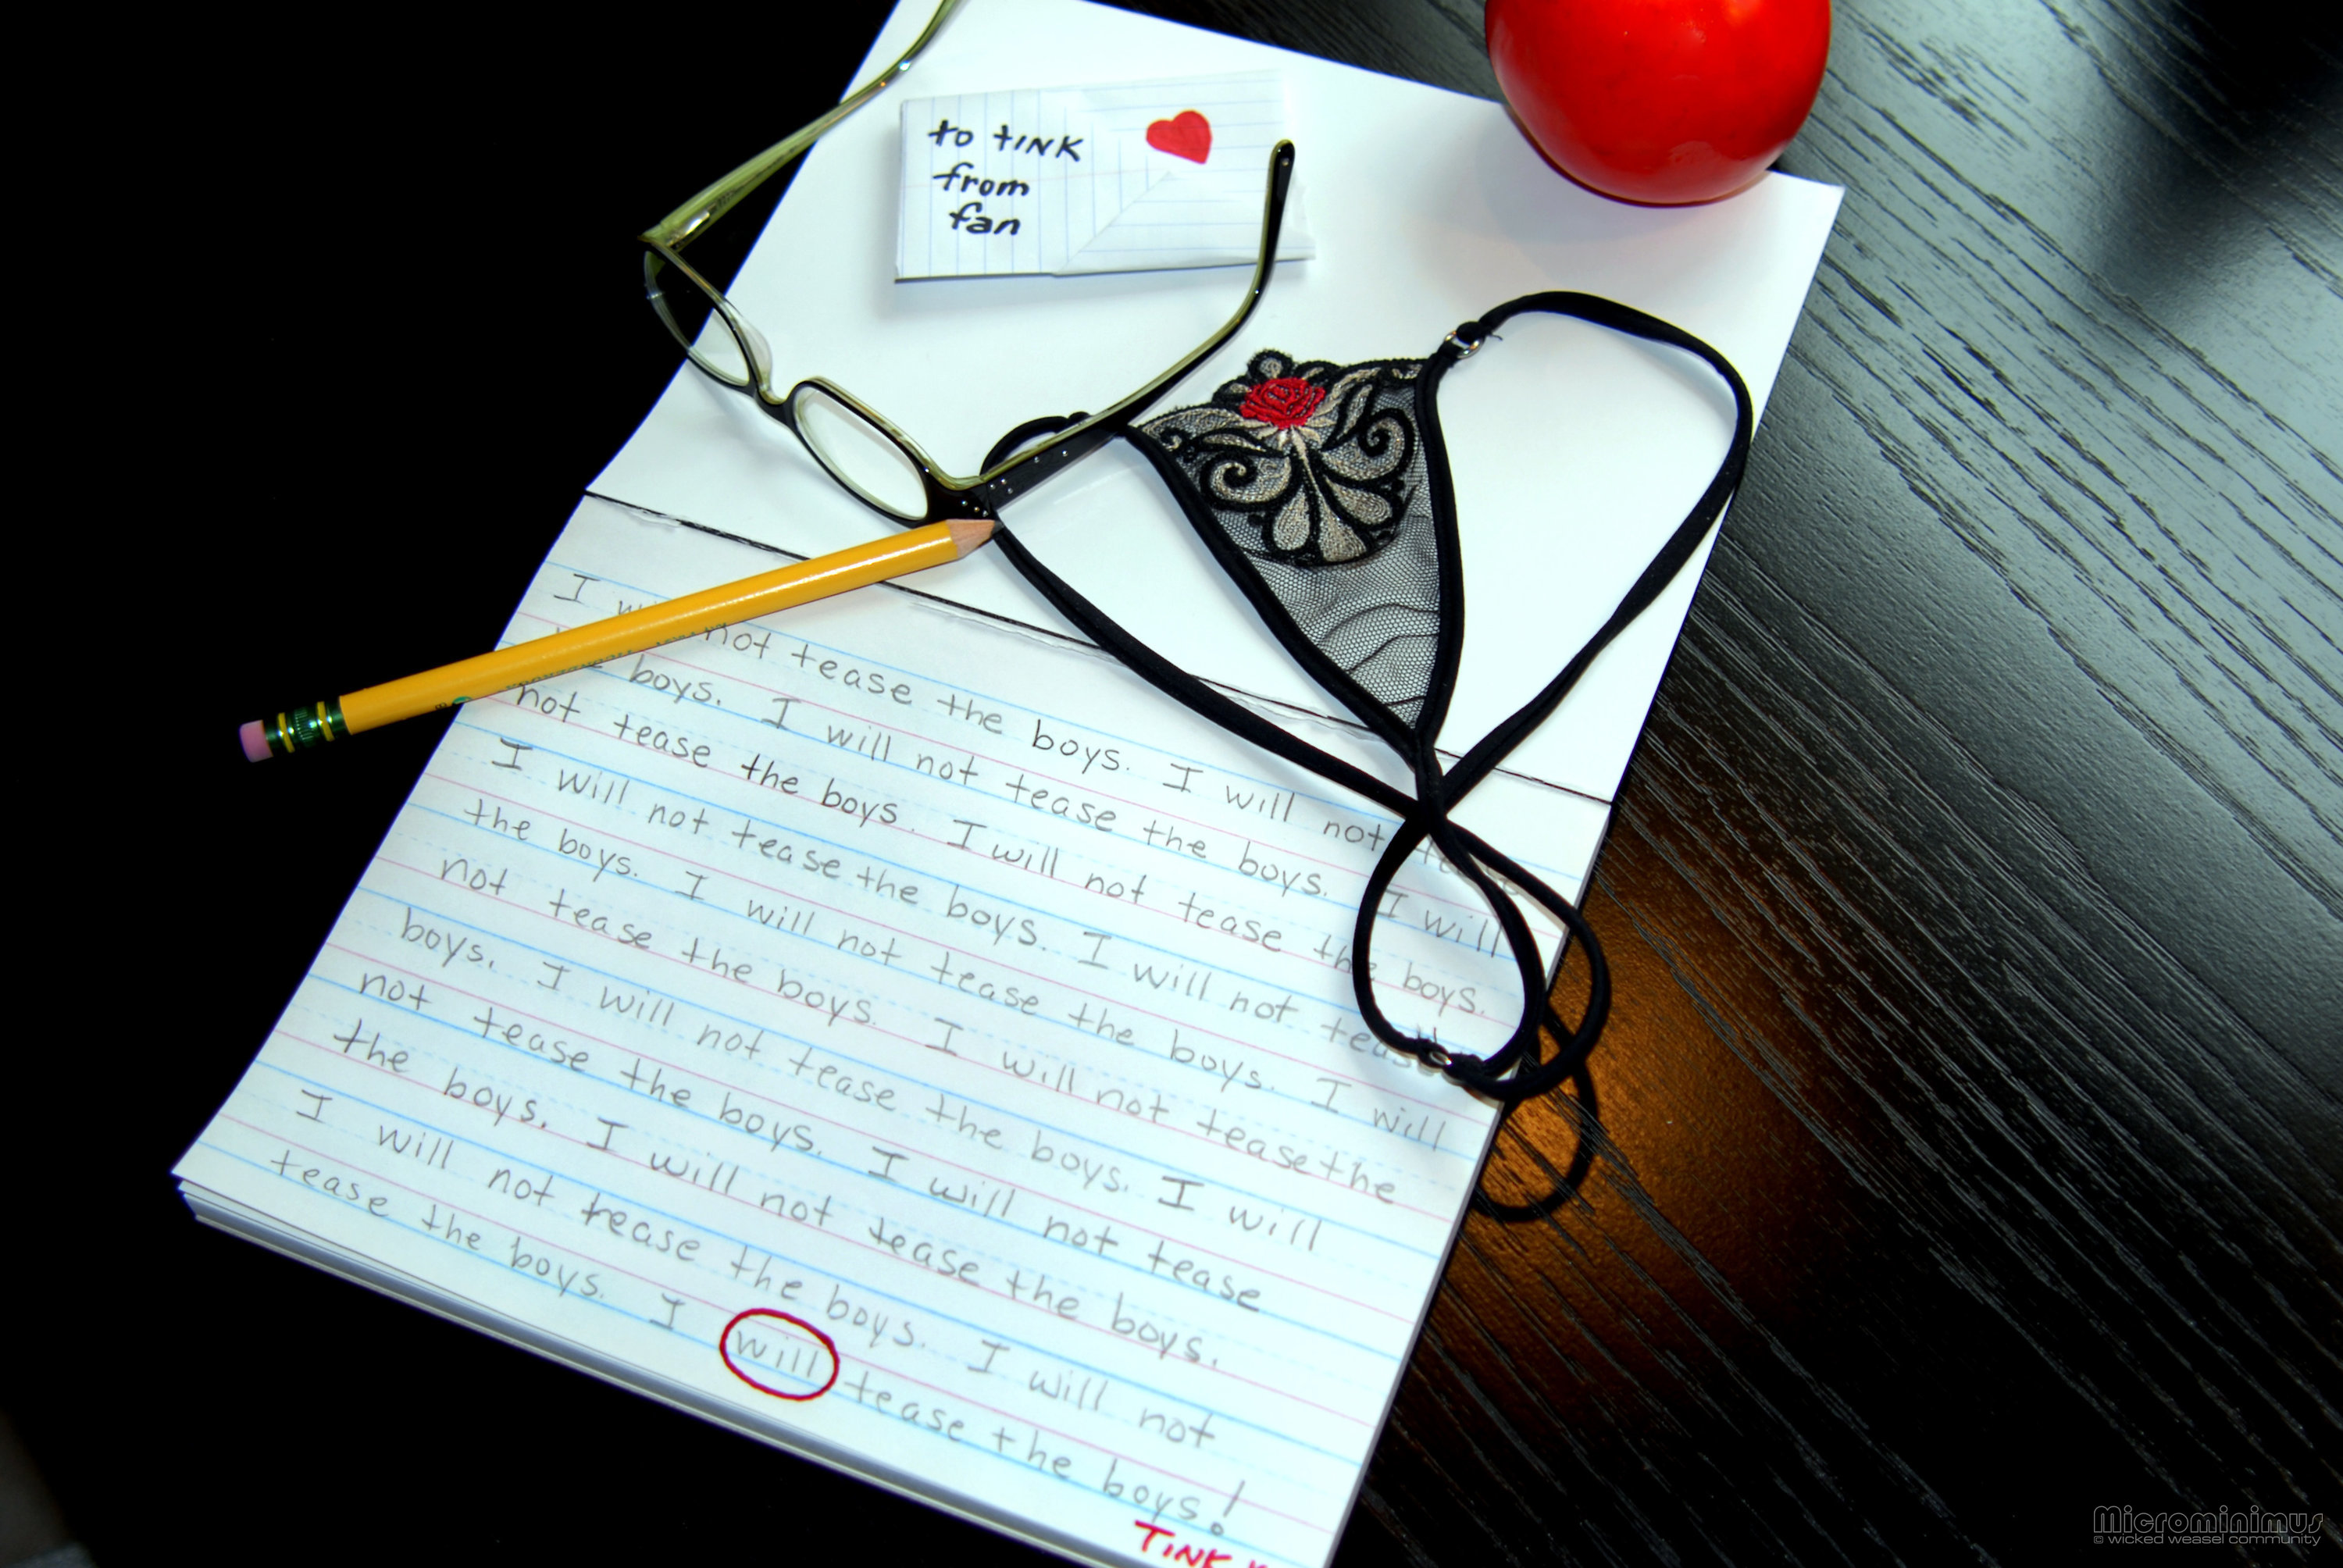 to tINK
from
fan
I will not tease the boys. I will not tease
the boys. I will not tease the boys. I will
not tease the boys. I will not tease the boys.
I will not tease the boys. I will not tease
the boys. I will not tease the boys. I will
not tease the boys. I will not tease the
boys. I will not tease the boys. I will
not tease the boys. I will not tease
the boys. I will not tease the boys.
I will not tease the boys. I will not
tease the boys. I will tease the boys!
TINK
Microminimus
© wicked weasel community